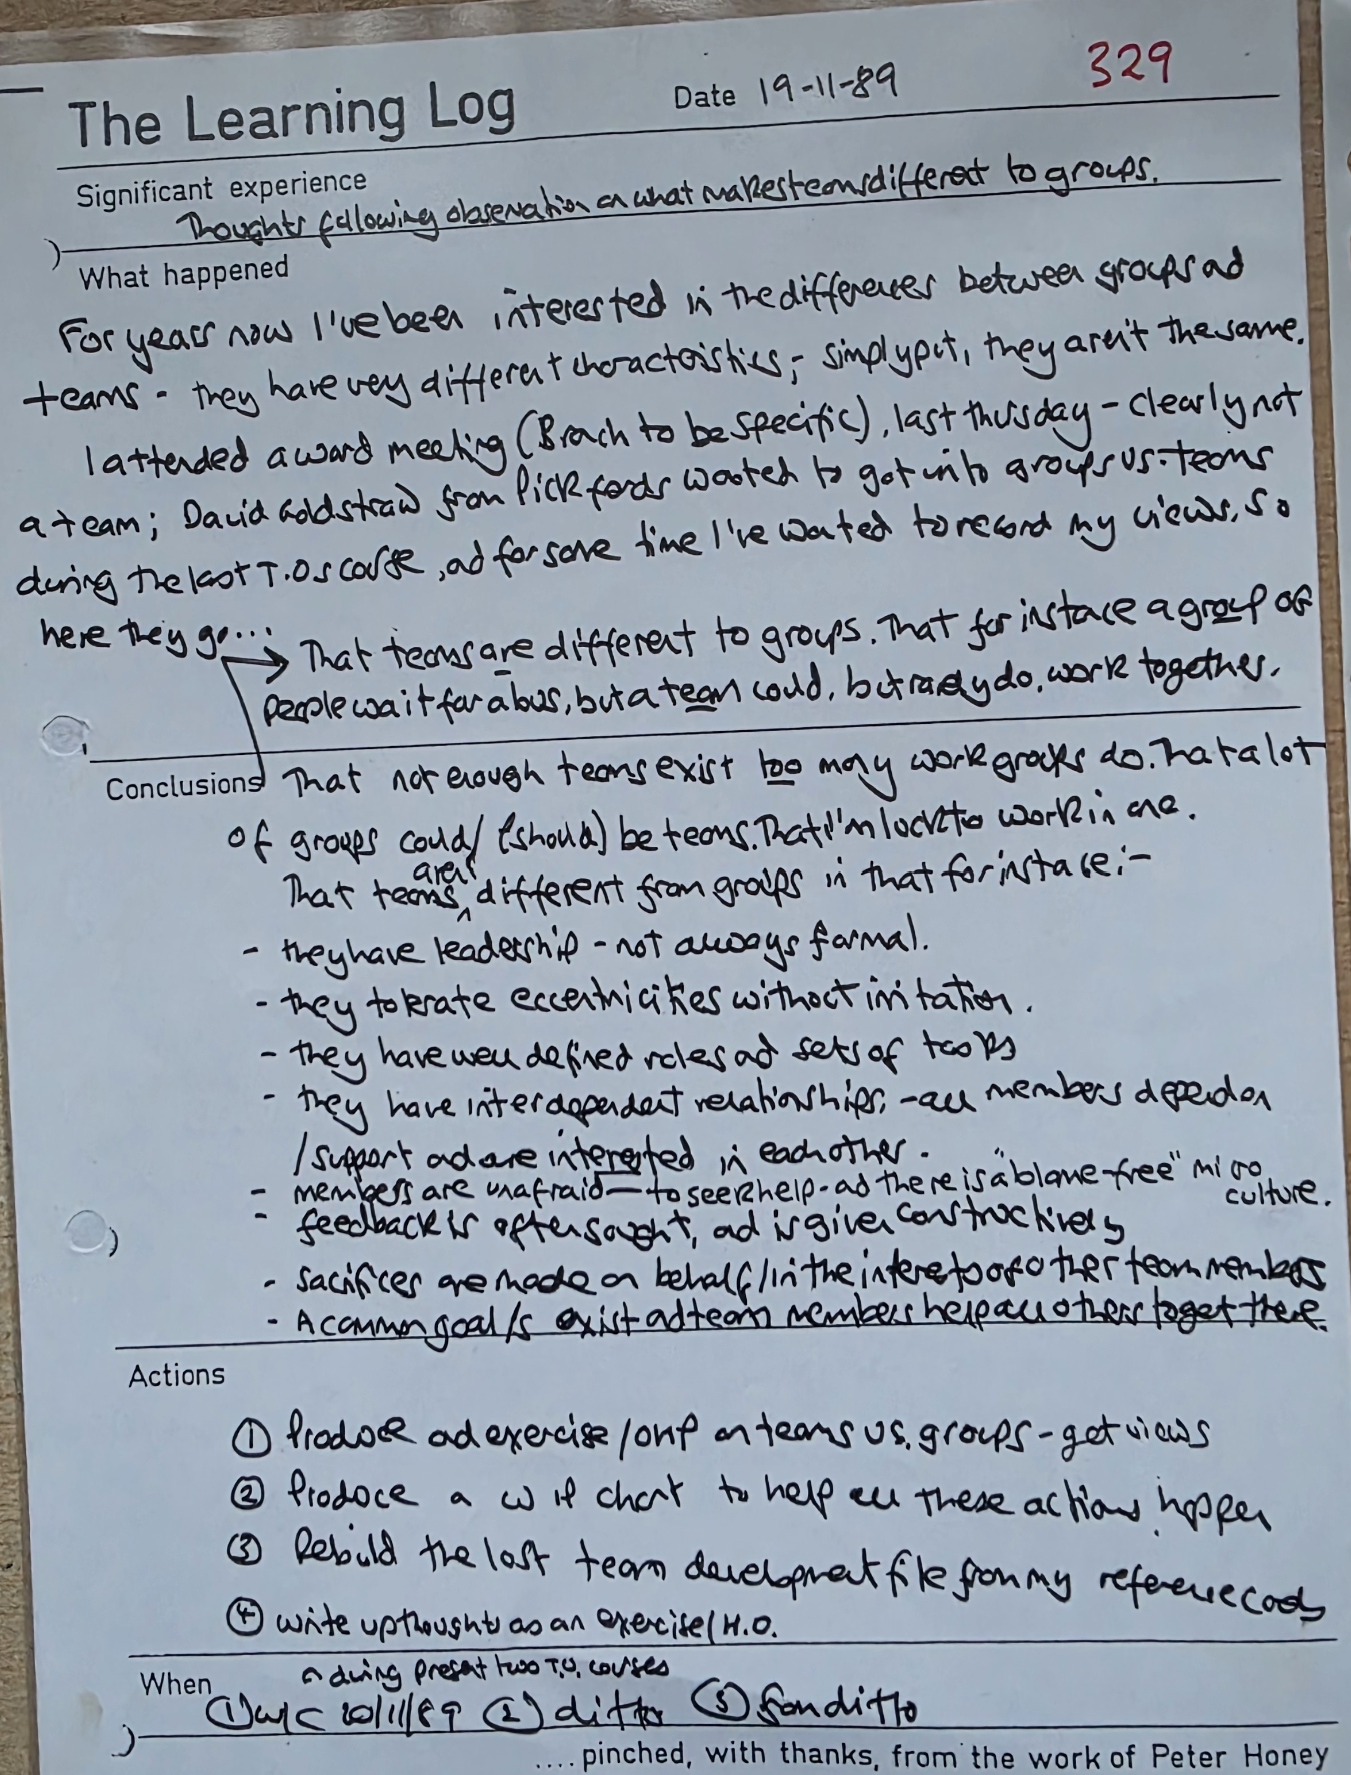 329
The Learning Log Date 19-11-89
Significant experience
Thoughts following observation on what makes teams different to groups.
What happened
For years now I've been interested in the differences between groups ad
teams - they have very different characteristics; simply put, they aren't the same.
I attended a ward meeting (Branch to be specific), last thursday - clearly not
a team; David Goldstraw from Pickfords wanted to get into groups vs. teams
during the last T.O's course, ad for some time I've wanted to record my views. So
here they go...
That teams are different to groups. That for instance a group of
people wait for a bus, but a team could, but rarely do, work together.
Conclusions That not enough teams exist too many work groups do. That a lot
of groups could/(should) be teams. That I'm lucky to work in one.
That teams are different from groups in that for instance:-
- they have leadership - not always formal.
- they tolerate eccentricities without irritation.
- they have well defined roles ad sets of tasks
- they have interdependent relationships; - all members depend on
/support ad are interested in each other.
- members are unafraid - to seek help - ad there is a "blame-free" micro culture.
- feedback is often sought, ad is given constructively
- sacrifices are made on behalf/in the interests of other team members
- A common goal/s exist ad team members help all others to get there.
Actions
① Produce ad exercise/ on teams vs. groups - get views
② Produce a chart to help all these actions happen
③ Rebuild the lost team development file from my reference cards
④ write up thoughts as an exercise/H.O.
When during present two T.O. courses
① w/c 20/11/89 ② ditto ③ from ditto
.... pinched, with thanks, from the work of Peter Honey